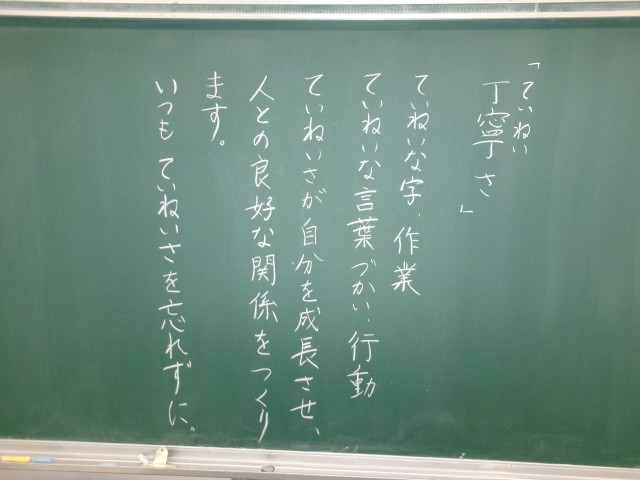 「丁寧さ」
ていねい
ていねいな字、作業
ていねいな言葉づかい、行動
ていねいさが自分を成長させ、
人との良好な関係をつくり
ます。
いつもていねいさを忘れずに。